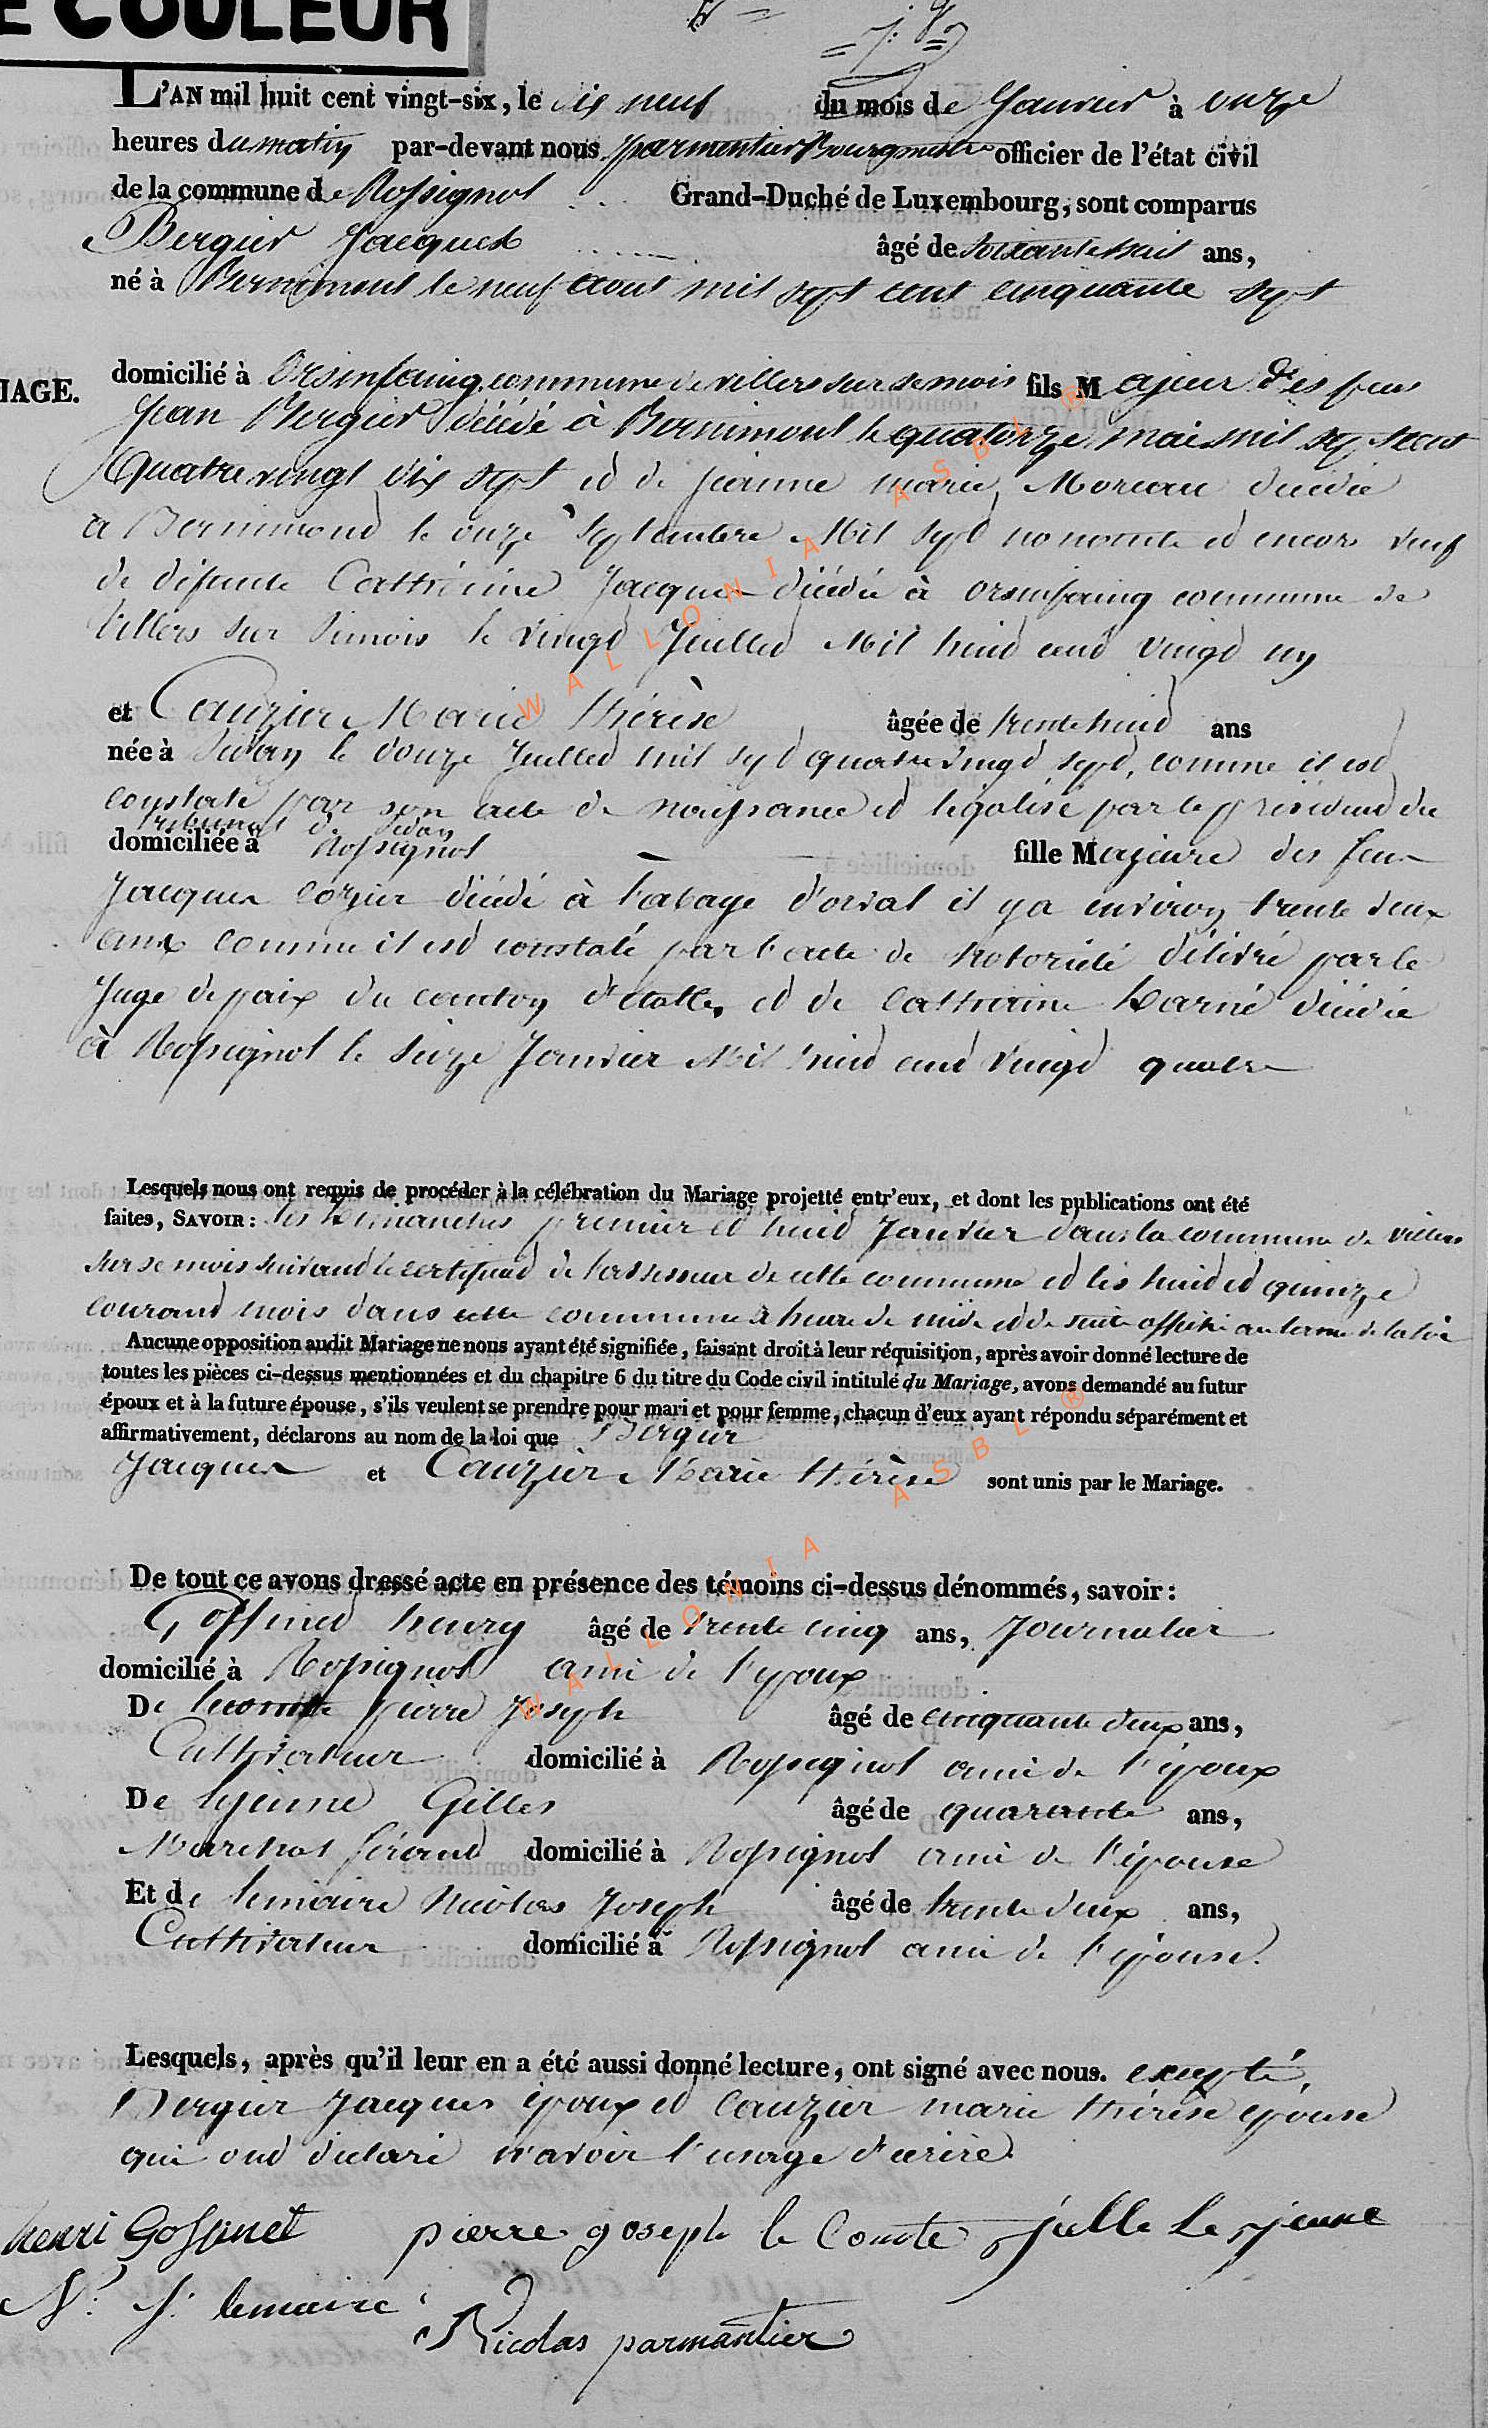 E COULEUR
L'AN mil huit cent vingt-six, le dix neuf du mois de Janvier à onze
heures du matin par-devant nous parmentier Bourgmestre officier de l'état civil
de la commune de Rossignol Grand-Duché de Luxembourg, sont comparus
Bergier Jacques âgé de soixante huit ans,
né à Bernimont le neuf aout mil sept cent cinquante sept
IAGE.
domicilié à Orsinfaing commune de villers sur semois fils Majeur des feus
Jean Bergier décédé à Bernimont le quatorze mai mil sept cent
quatre vingt dix sept et de jeanne marie Moreau décédée
a Bernimond le onze Septembre Mil sept nonante et encore veuf
de défunte Catherine Jacques décédée à orsinfaing commune de
Villers sur Simois le vingt Juilled Mil huid cend vingd un
et Cauzier Marie thérèse âgée de trente huid ans
née à Sedan le douze Juilled mil sept quatre vingd sept, comme il est
constaté par son acte de naissance et légalisé par le président du
tribunal de Sedan
domiciliée à Rossignol fille Majeure des feus
Jacques cozier décédé à l'abaye d'orval il y a environ trente deux
ans comme il est constaté par l'acte de notoriété délivré par le
Juge de paix du canton d'etalle, et de Catherine décédée
à Rossignol le Seize Janvier Mil huid cend vingd quatre
Lesquels nous ont requis de procéder à la célébration du Mariage projetté entr'eux, et dont les publications ont été
faites, SAVOIR: les dimanches premier et huid Janvier dans la commune de villers
sur semois suivand le certificad de l'assesseur de cette commune et les huid et quinze
courand mois dans cette commune à heure de midi et de suite affiché au terme de la loi
Aucune opposition audit Mariage ne nous ayant été signifiée, faisant droit à leur réquisition, après avoir donné lecture de
toutes les pièces ci-dessus mentionnées et du chapitre 6 du titre du Code civil intitulé du Mariage, avons demandé au futur
époux et à la future épouse, s'ils veulent se prendre pour mari et pour femme, chacun d'eux ayant répondu séparément et
affirmativement, déclarons au nom de la loi que Bergier
Jacques et Cauzier Marie thérèse sont unis par le Mariage.
De tout ce avons dressé acte en présence des témoins ci-dessus dénommés, savoir:
Goffined henry âgé de trente cinq ans, Journalier
domicilié à Rossignol ami de l'époux
De lecomte pierre Joseph âgé de cinquante deux ans,
Cultivateur domicilié à Rossignol ami de l'époux
De lejeune Gilles âgé de quarante ans,
Marechal férand domicilié à Rossignol ami de l'épouse
Et de lemaire Nicolas Joseph âgé de trente deux ans,
Cultivateur domicilié à Rossignol ami de l'épouse.
Lesquels, après qu'il leur en a été aussi donné lecture, ont signé avec nous. excepté,
Bergier Jacques époux et Cauzier marie thérèse épouse
qui ond déclaré n'avoir l'usage d'ecrire
henri Goffinet pierre goseph le Comte julle Le jeune
N: J: lemaire
Nicolas parmantier
WALLONIA ASBL ®
WALLONIA ASBL ®